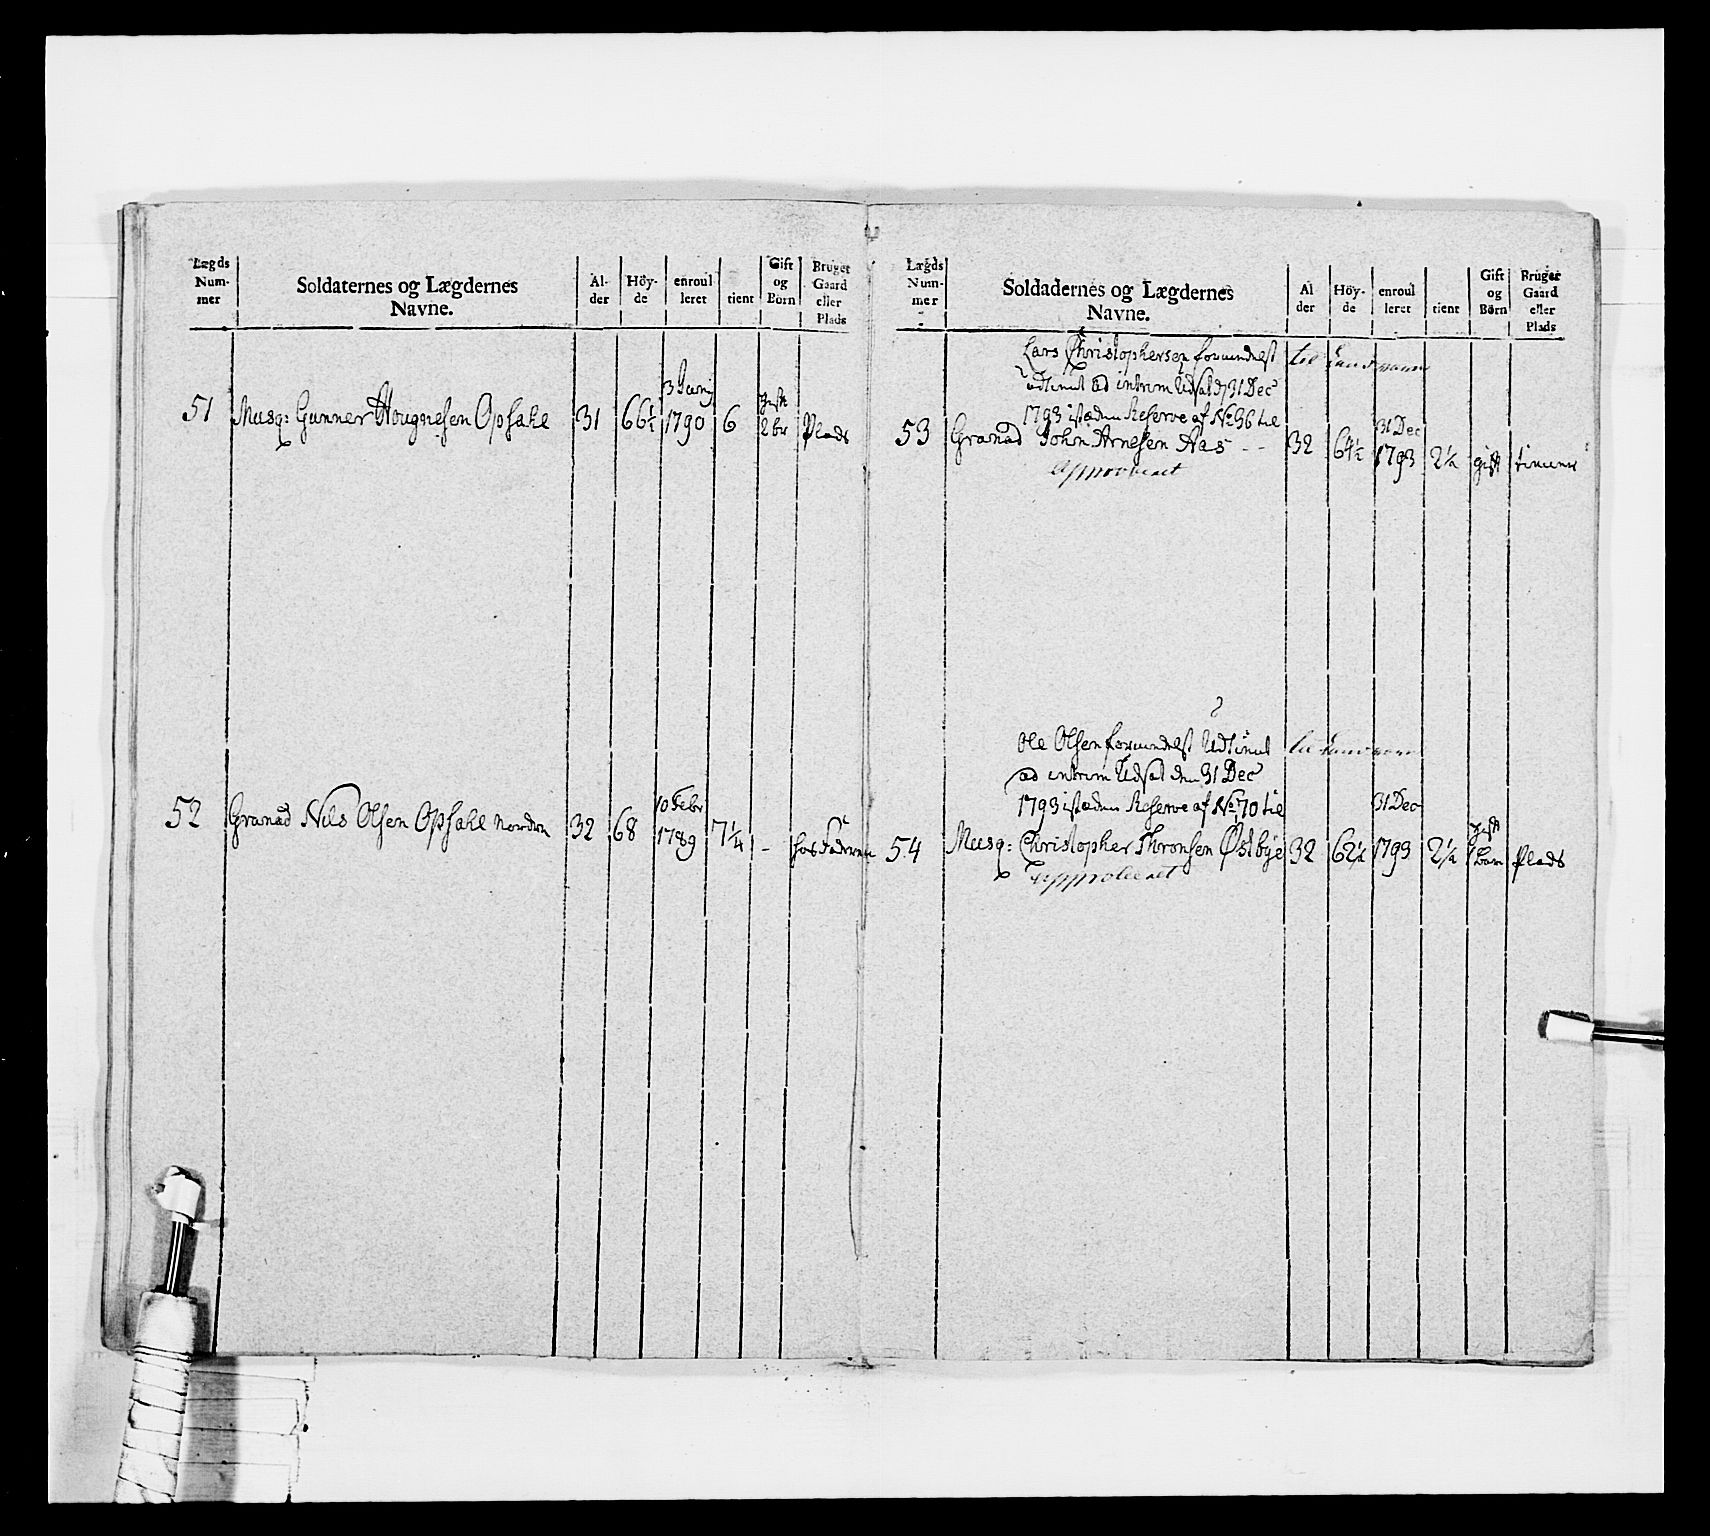 Lægds Num- mer
Soldaternes og Lægdernes Navne.
Al- der
Höy- de
enroul leret
tient
Gift og Börn
Bruger Gaard eller Plads
51 Musq: Gunner Hougnesen Opsahl 31 66½ 3 Junj 1790 6 gift 2 bn Plads
52 Granad Nils Olsen Opsahl Nordre 32 68 10 Febr 1789 7¼ - hos Faderen
Lægds Num- mer
Soldadernes og Lægdernes Navne.
Al der
Höy- de
enroul leret
tient
Gift og Börn
Bruger Gaard eller Plads
Lars Christophersen formedelst
til Landværn
udtient ad intrim Udsat d 31 Dec
1793 isteden Reserve af No 36 til
53 Granad John Arnesen Aas - - 32 64½ 31 Dec 1793 2¼ gift
Approberet
Ole Olsen formedelst Udtient
til Landværn
ad intrim Udsat den 31 Dec
1793 isteden Reserve af No 70 til
54 Musq: Christopher Thronsen Østbye 32 62½ 31 Dec 1793 2¼ gift 1 Barn Plads
Approberet